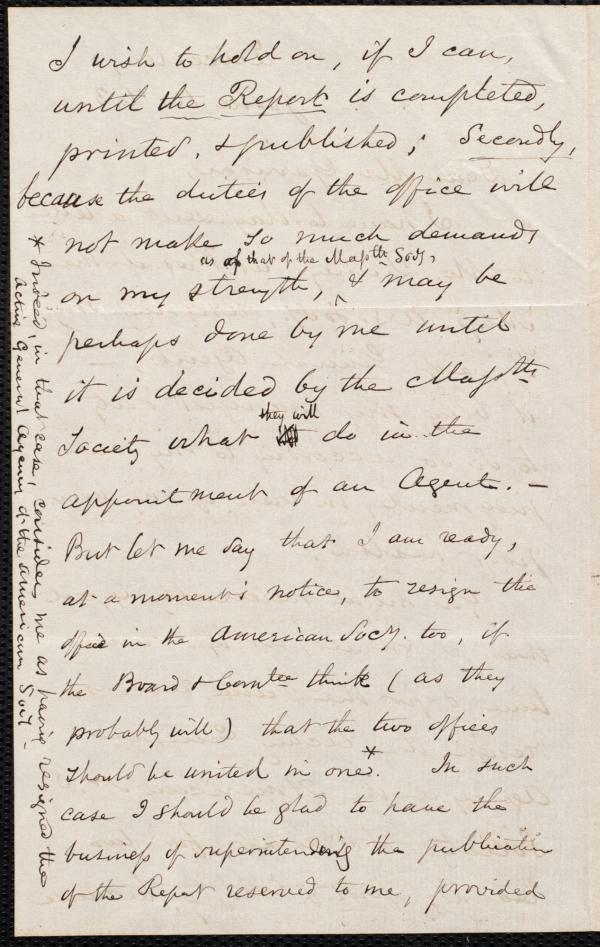 I wish to hold on, if I can,
until the Report is completed,
printed, & published; Secondly,
because the duties of the office will
not make so much demands
as of that of the Massts. Socy,
on my strength, & may be
perhaps done by me until
it is decided by the Massts.
they will
Society what do in the
appointment of an Agent. —
But let me say that I am ready,
at a moment's notice, to resign the
office in the American Socy. too, if
the Board & Comtee think (as they
probably will) that the two offices
should be united in one.* In such
case I should be glad to have the
business of superintending the publication
of the Report reserved to me, provided
* Indeed, in that case, consider me as having resigned the
acting General Agency of the American Socy.